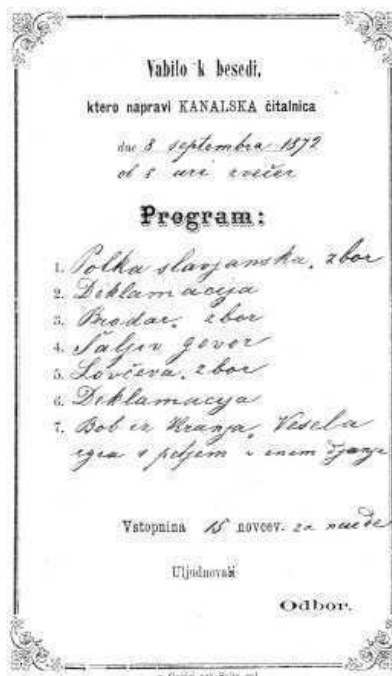 Vabilo k besedi,
ktero napravi KANALSKA čitalnica
dne 8 septembra 1872
ob 8 uri zvečer
Program:
1. Polka slavjanska, zbor
2. Deklamacija
3. Brodar, zbor
4. Šaljiv govor
5. Lovčeva, zbor
6. Deklamacija
7. Bob iz Kranja, Vesela
igra s petjem v enem djanji
Vstopnina 15 novcev. za neude
Uljudnovaši
Odbor.